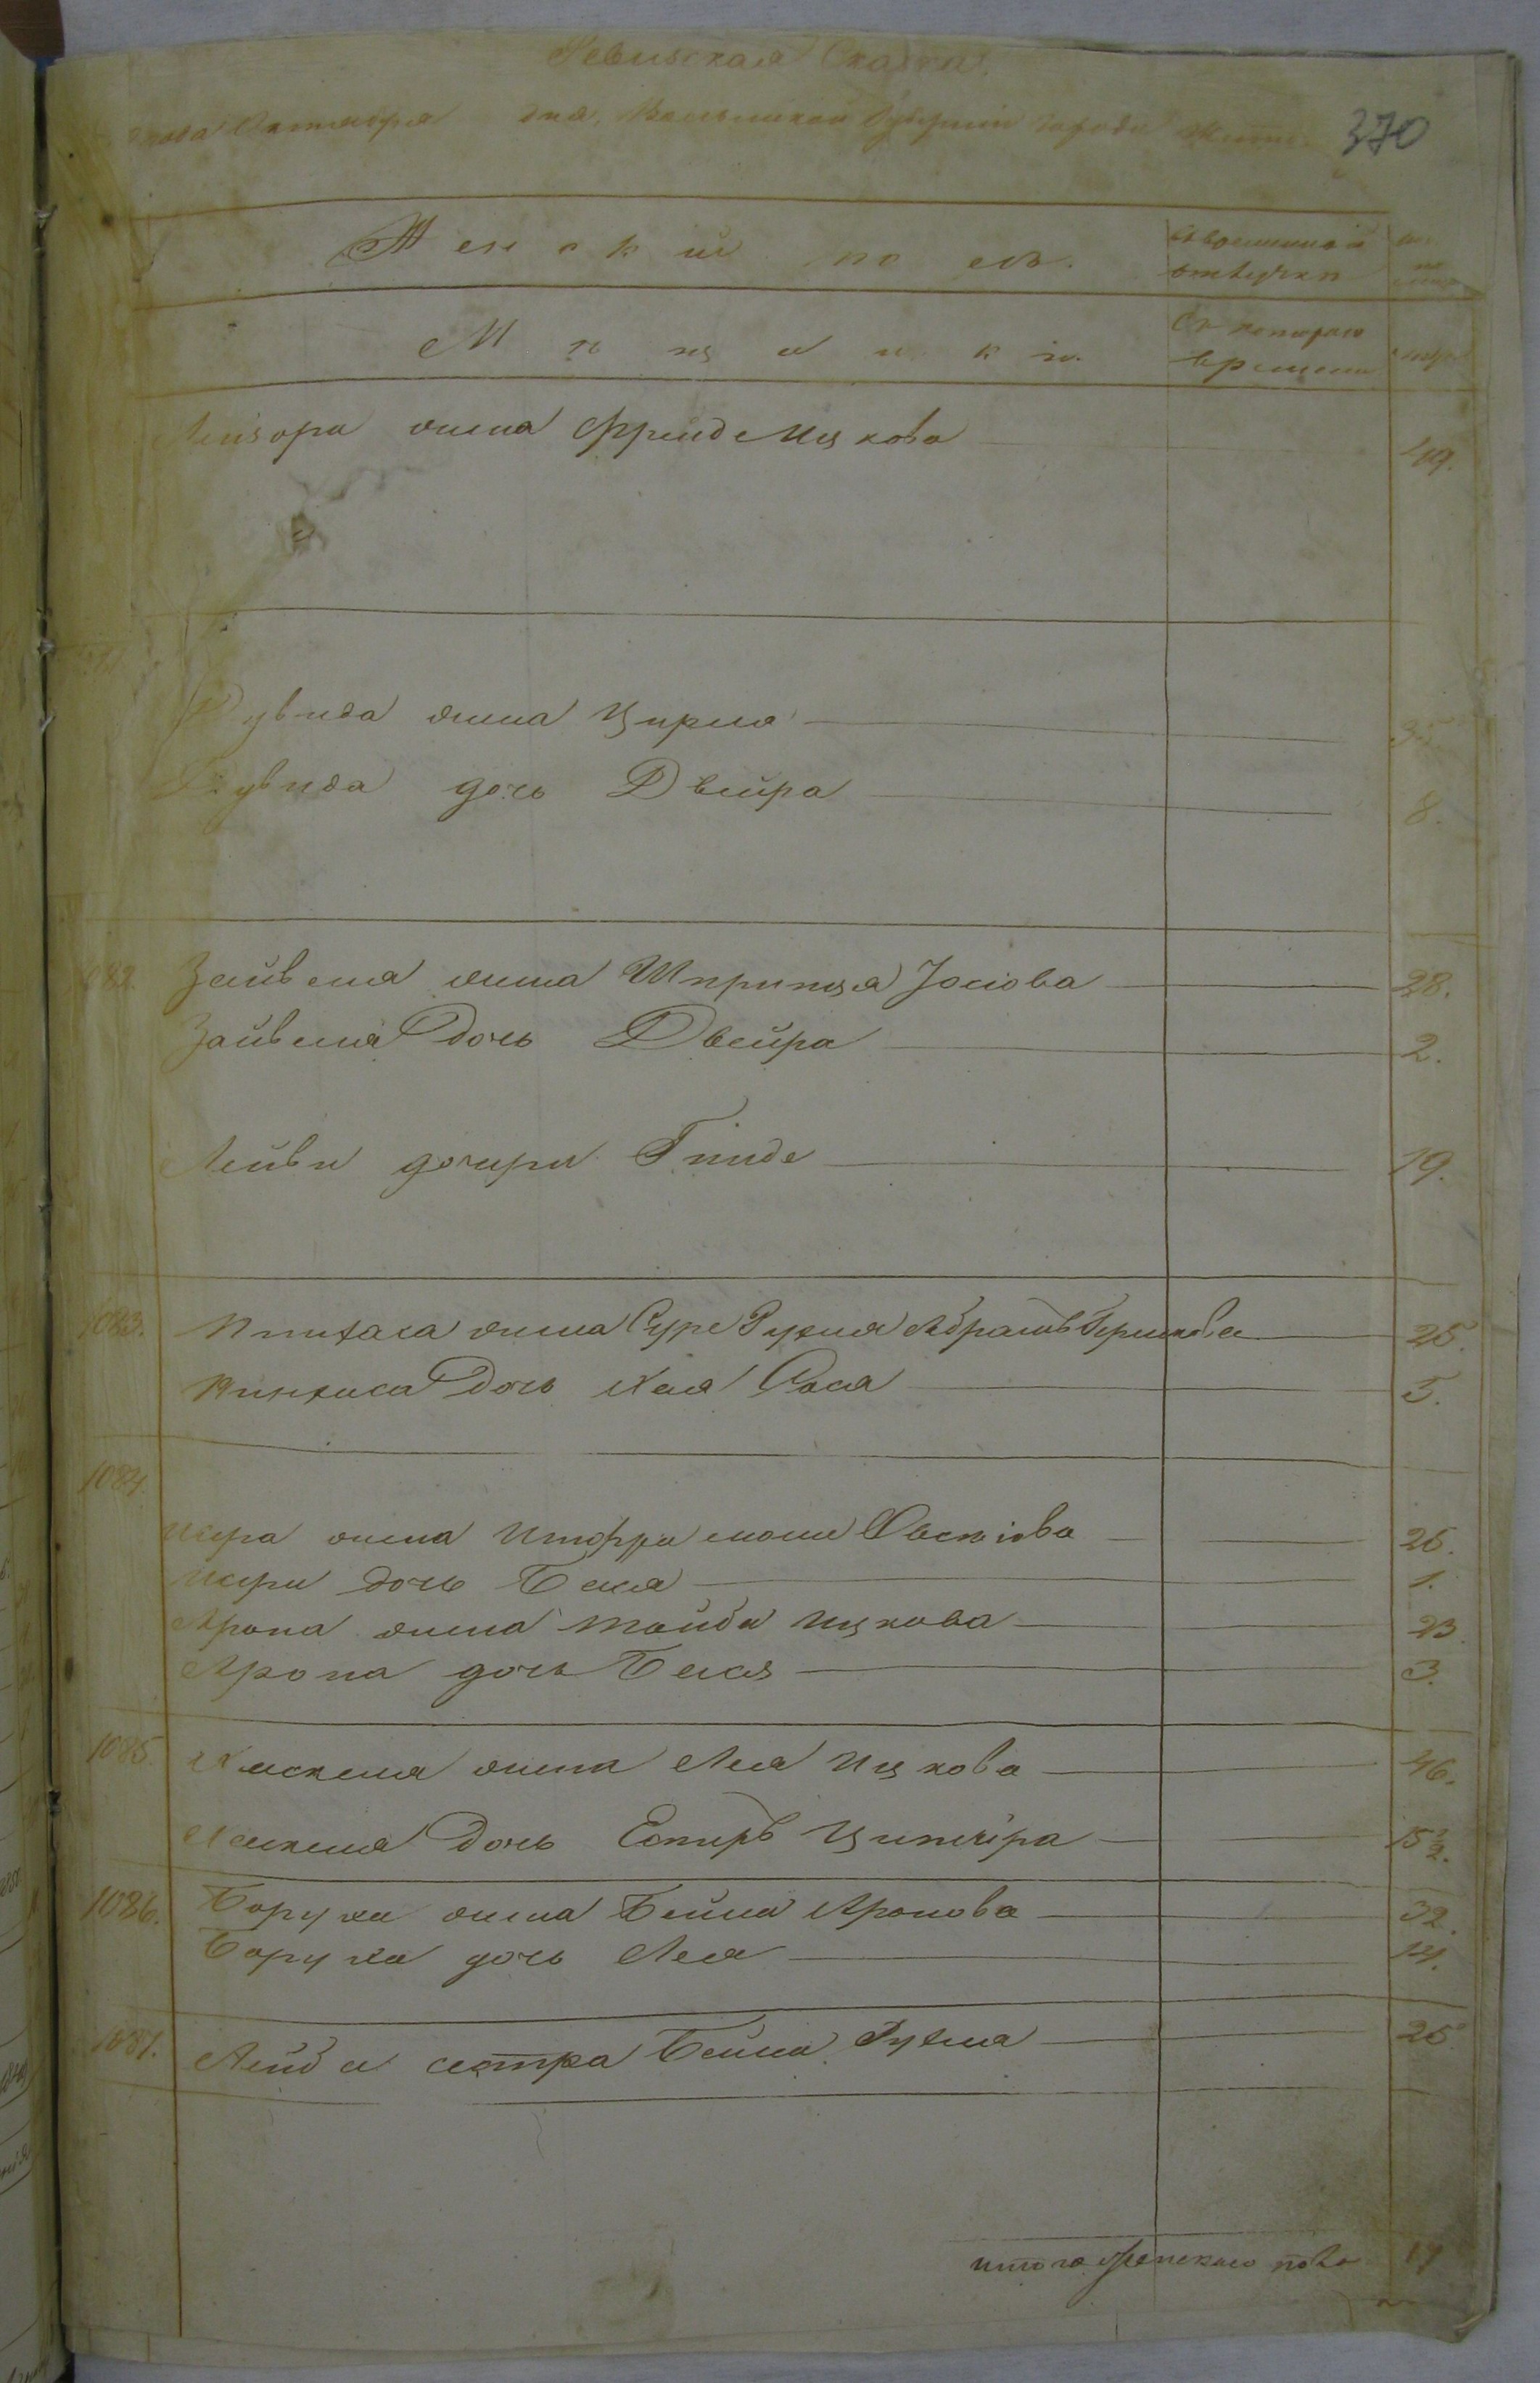 Ревизская Сказка.
года Октября дня, Волынской Губернии города Жито 370
Женский полъ. Во временной отлучкѣ
Мѣщанки. Съ котораго времени
Лейзора жена Фрейде Ицкова 49.
Дувида жена Цирля 35
Дувида дочь Двейра 8.
1082. Зейвеля жена Шпринця Іосіова 28.
Зайвеля Дочь Двейра 2.
Лейви дочери Гинде 19.
1083. Пинхаса жена Суре Рухля Абрамъ Гершкова 25.
Пинхаса Дочь Хая Сося 5.
1084.
Исера жена Ицкова 26.
Исера дочь Бейля 1.
Арона жена Тойба Ицкова 23
Арона дочь Бейля 3.
1085. Хаскеля жена Лея Ицкова 46.
Хаскеля Дочь Естиръ Ципейра 15 ½.
1086. Боруха жена Бейла Аронова 32.
Боруха дочь Лея 14.
1087. Лейба сестра Бейла Рухля 26
итого женскаго пола 17